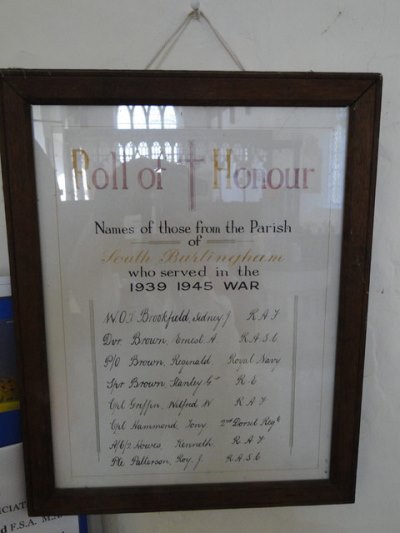 Roll of Honour
Names of those from the Parish
of
South Burlingham
who served in the
1939 1945 WAR
W.O.I Brookfield, Sidney J R A F
Dvr Brown, Ernest A. R.A.S.C
P/O Brown, Reginald. Royal Navy
Spr Brown, Stanley G R.E
Cpl Griffin, Wilfred W R.A.F
Cpl Hammond Tony 2nd Dorset Regt
A/C/2 Howes, Kenneth. R.A.F
Pte Patterson, Roy. J. R.A.S.C
CIAT
d F.S.A. M.